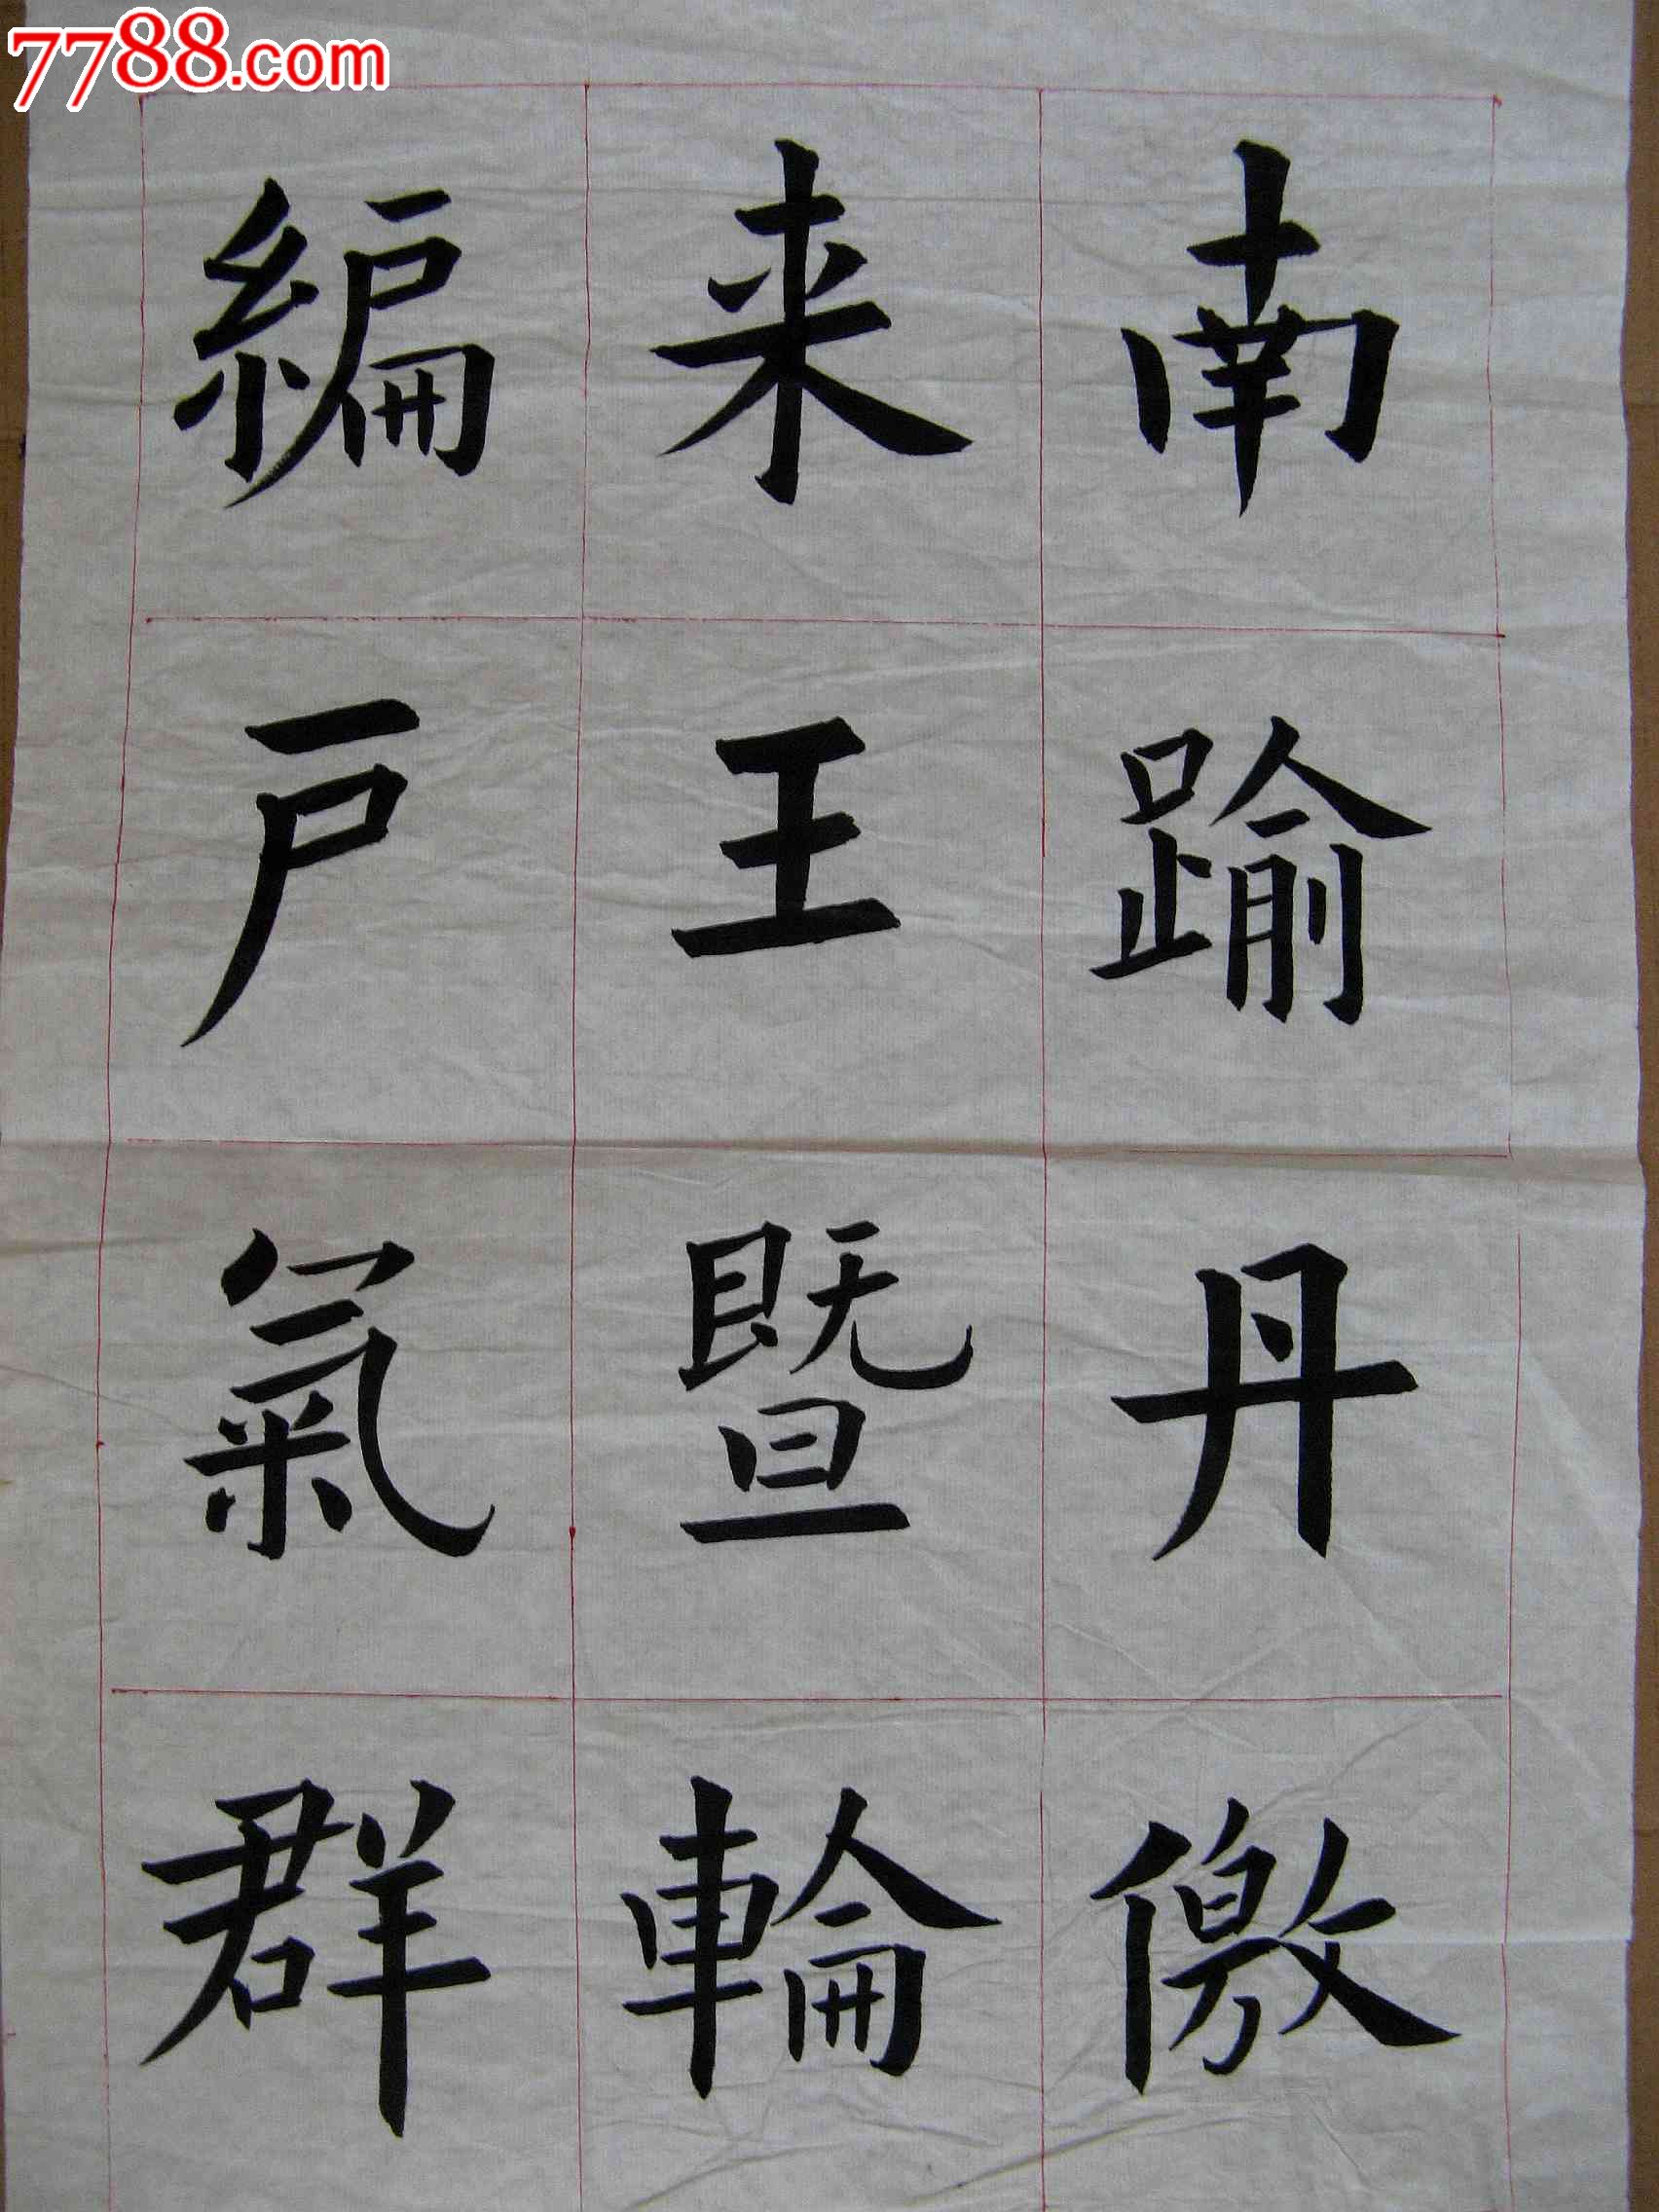 7788.com
南踰丹儌
来王暨輪
編戸氣群